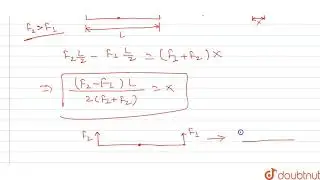 F₂>F₁
L
x
F₂ L/2 - F₁ L/2 = (F₁+F₂) x
⇒ (F₂-F₁) L / 2(F₁+F₂) = x
F₂ F₁ →
doubtnut